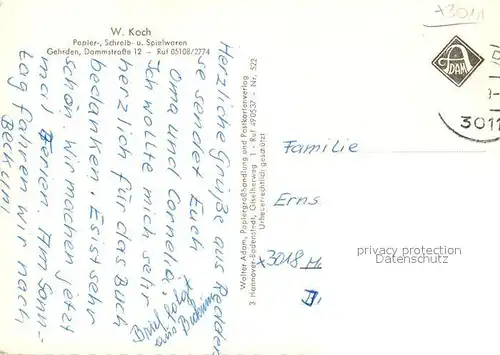 W. Koch
Papier-, Schreib- u. Spielwaren
Gehrden, Dammstraße 12 – Ruf 05108/2774
Herzliche Grüße aus Redder
se sendet Euch
Oma und Cornelia.
Ich wollte mich sehr
herzlich für das Buch
bedanken. Es ist sehr
schön. Wir machen jetzt
mal Ferien. Am Sonn-
tag fahren wir nach
Beckum,
Brief folgt
aus Beckum
Walter Adam, Papiergroßhandlung und Postkartenverlag
3 Hannover-Badenstedt, Giselherweg 1 - Ruf 490537 - Nr. 522
Urheberrechtlich geschützt!
x3011
ADAM
3011
Familie
Erns
x3018 H.
privacy protection
Datenschutz